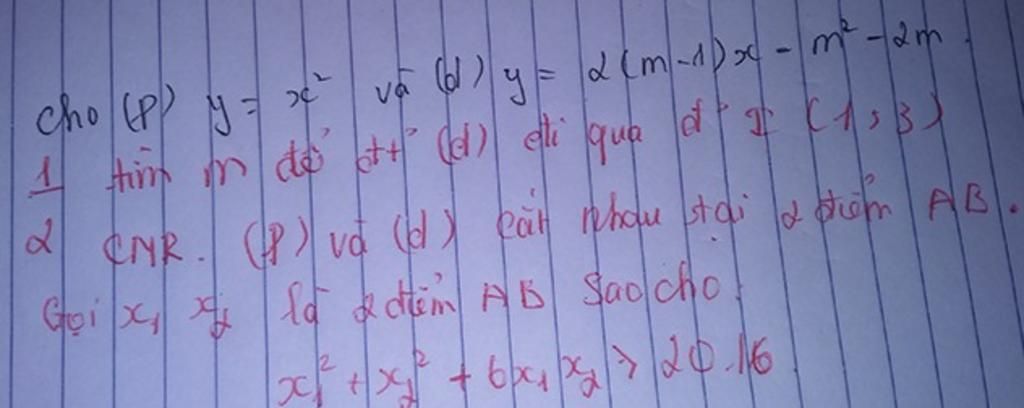 cho (P) y = x² và (d) y = 2(m-1)x - m² - 2m.
1 tìm m để đt (d) đi qua đ' I (1; 3)
2 CMR. (P) và (d) cắt nhau tại 2 điểm AB.
Gọi x₁ x₂ là 2 điểm AB sao cho
x₁² + x₂² + 6x₁x₂ > 2016